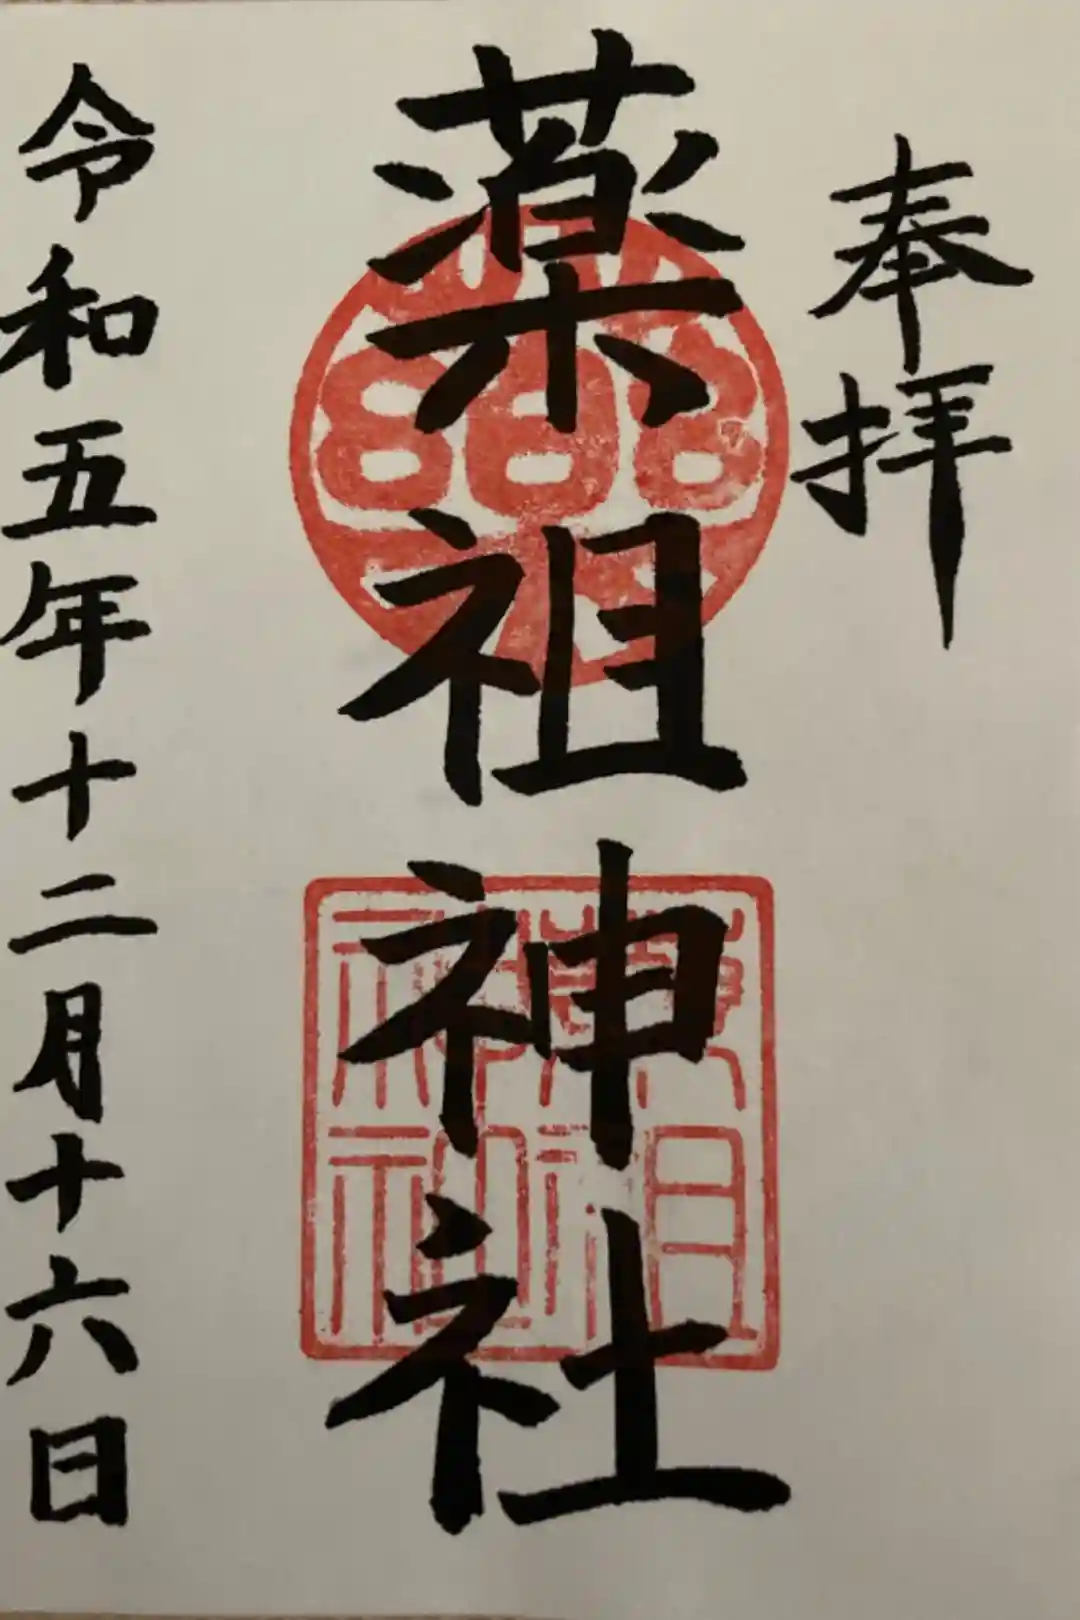 奉拝
薬祖神社
令和五年十二月十六日
薬祖
神社